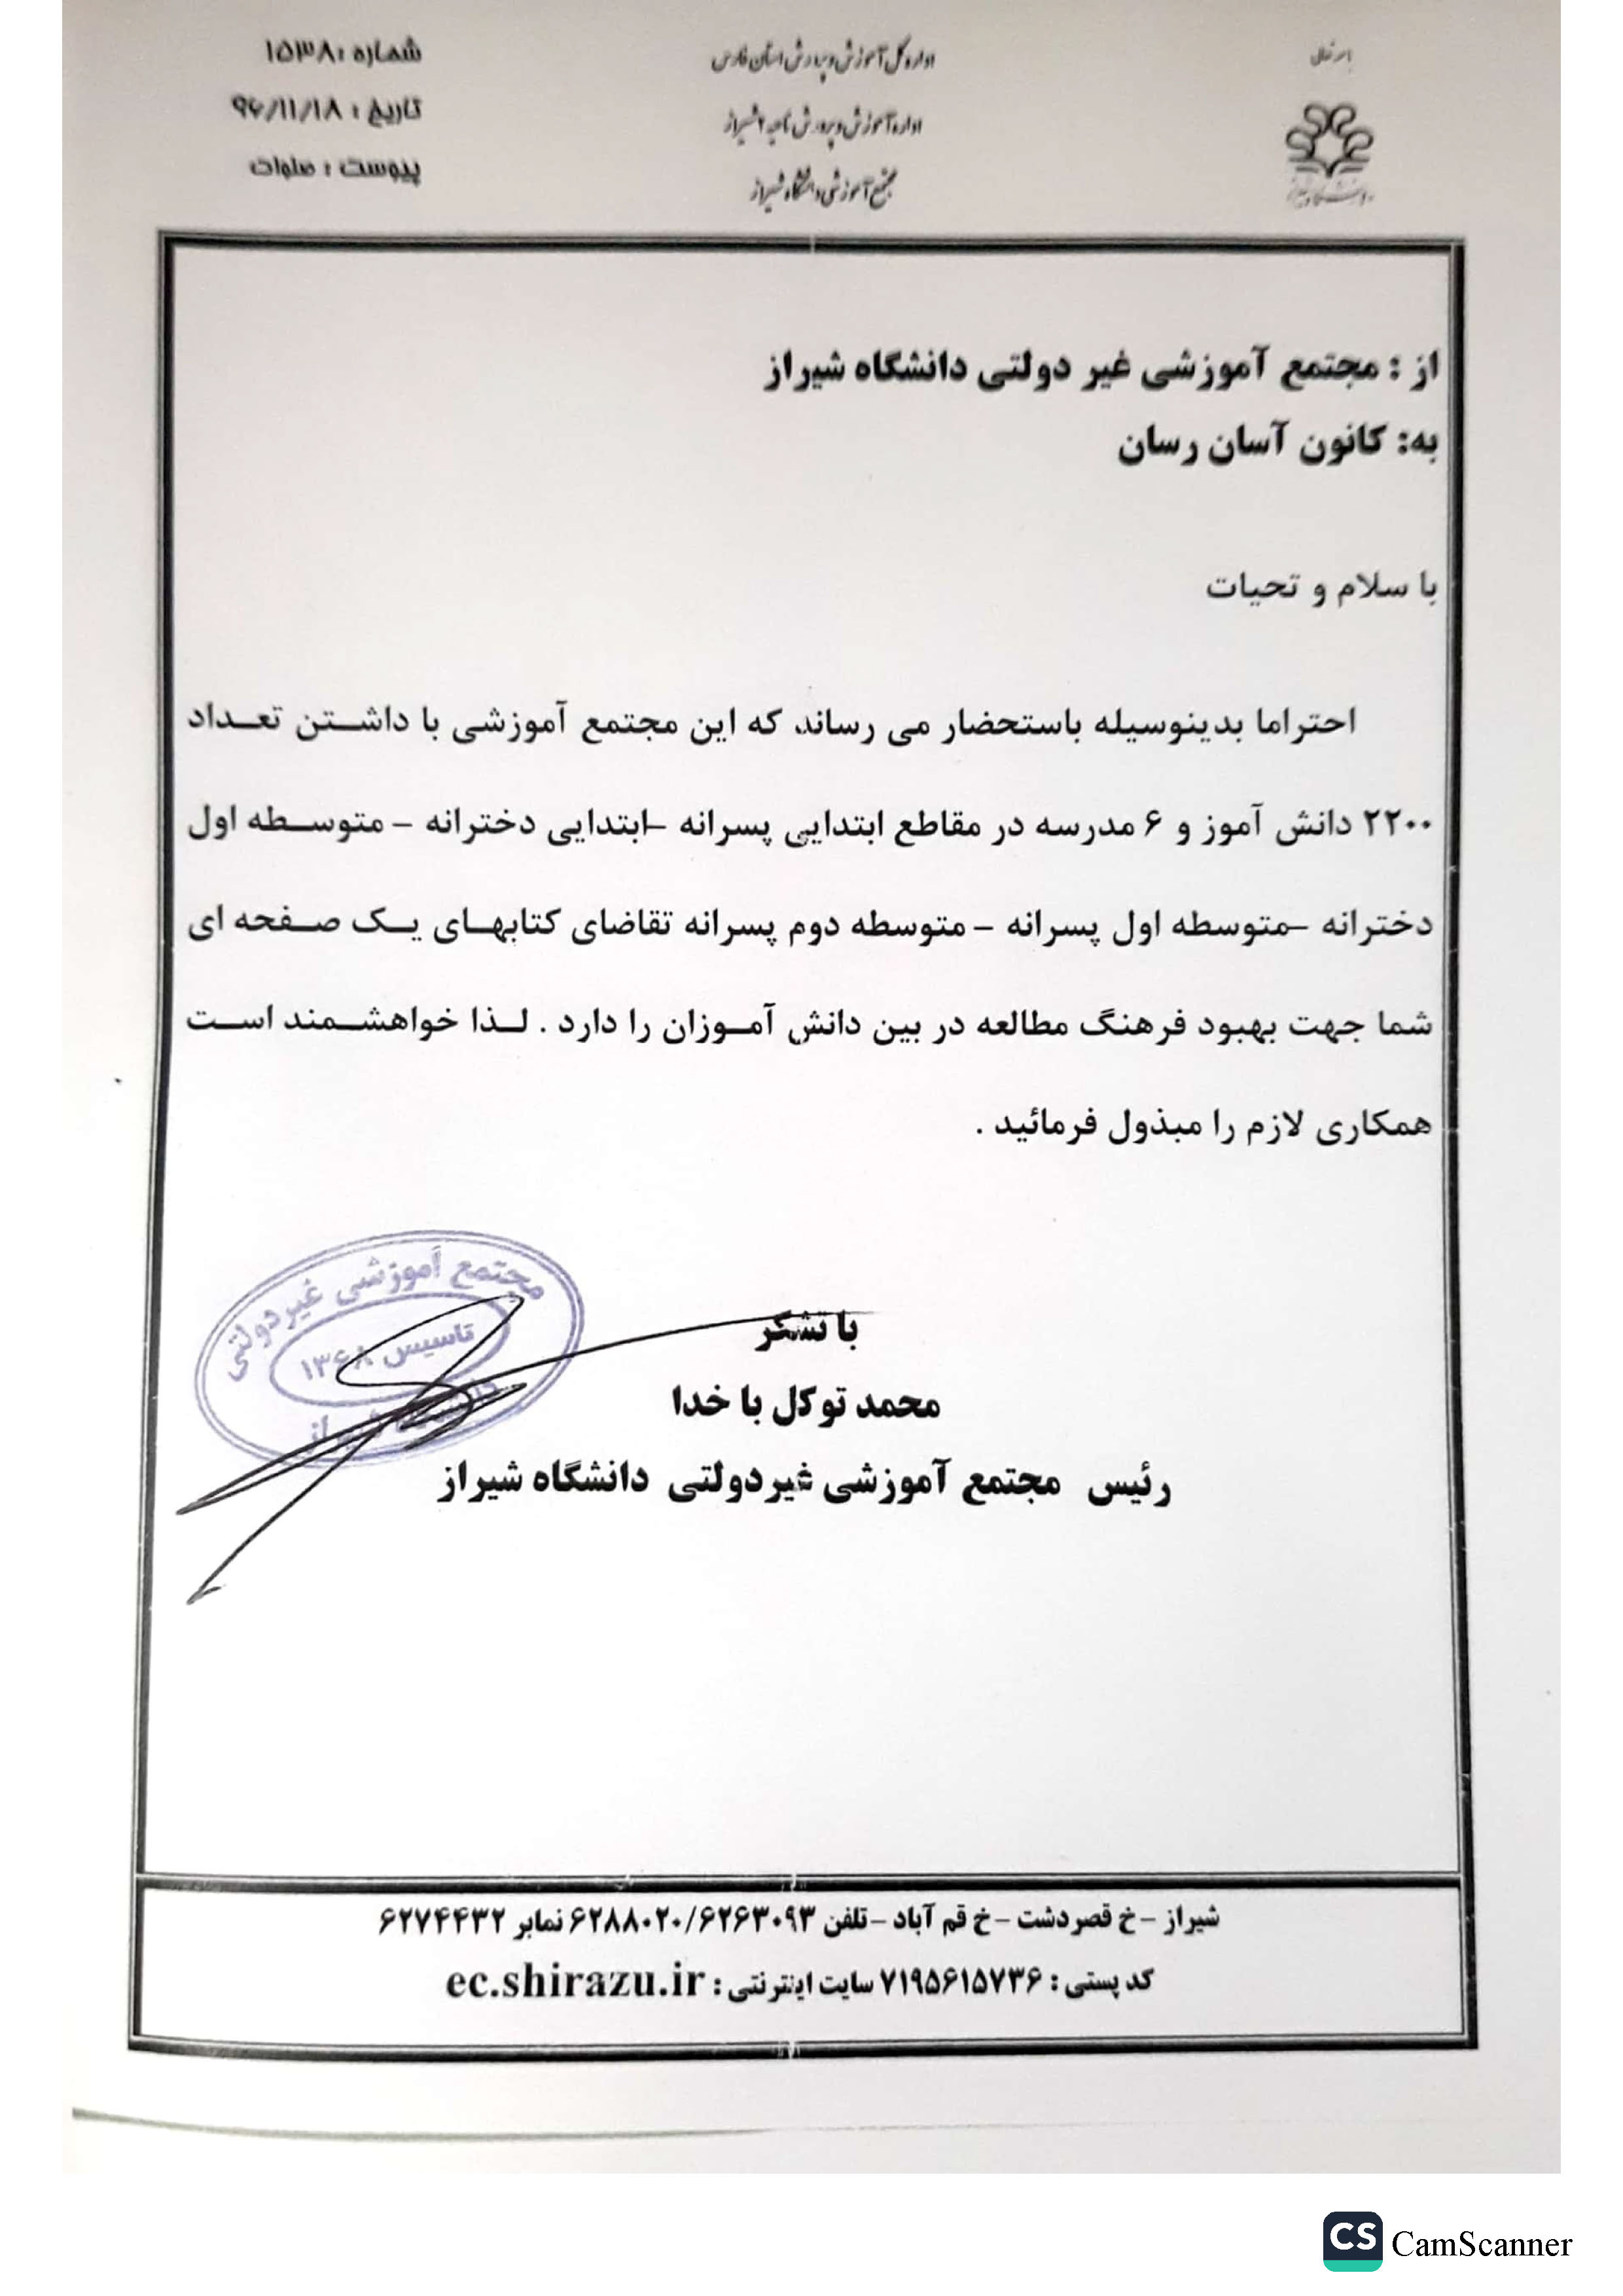 باسمه تعالی
اداره کل آموزش و پرورش استان فارس
اداره آموزش و پرورش ناحیه ۲ شیراز
مجتمع آموزشی دانشگاه شیراز
شماره : ۱۵۳۸
تاریخ : ۹۶/۱۱/۱۸
پیوست : صلوات
از : مجتمع آموزشی غیر دولتی دانشگاه شیراز
به: کانون آسان رسان
با سلام و تحیات
احتراما بدینوسیله باستحضار می رساند که این مجتمع آموزشی با داشتن تعداد
۲۲۰۰ دانش آموز و ۶ مدرسه در مقاطع ابتدایی پسرانه -ابتدایی دخترانه - متوسطه اول
دخترانه -متوسطه اول پسرانه - متوسطه دوم پسرانه تقاضای کتابهای یک صفحه ای
شما جهت بهبود فرهنگ مطالعه در بین دانش آموزان را دارد . لذا خواهشمند است
همکاری لازم را مبذول فرمائید .
مجتمع آموزشی غیردولتی
تاسیس ۱۳۶۸
دانشگاه شیراز
با تشکر
محمد توکل با خدا
رئیس مجتمع آموزشی غیردولتی دانشگاه شیراز
شیراز - خ قصردشت - خ قم آباد - تلفن ۶۲۸۸۰۲۰/۶۲۶۳۰۹۳ نمابر ۶۲۷۴۴۳۲
کد پستی : ۷۱۹۵۶۱۵۷۳۶ سایت اینترنتی : ec.shirazu.ir
CS CamScanner